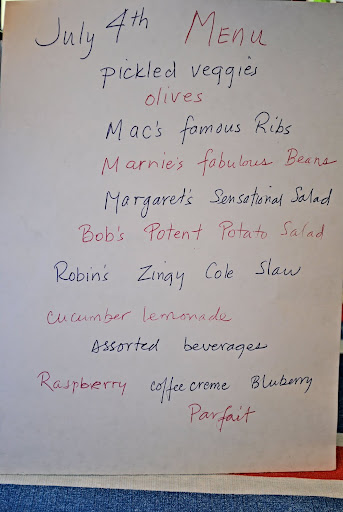 July 4th Menu
pickled veggies
olives
Mac's famous Ribs
Marnie's fabulous Beans
Margaret's Sensational Salad
Bob's Potent Potato Salad
Robin's Zingy Cole Slaw
cucumber lemonade
Assorted beverages
Raspberry coffee creme Bluberry
Parfait